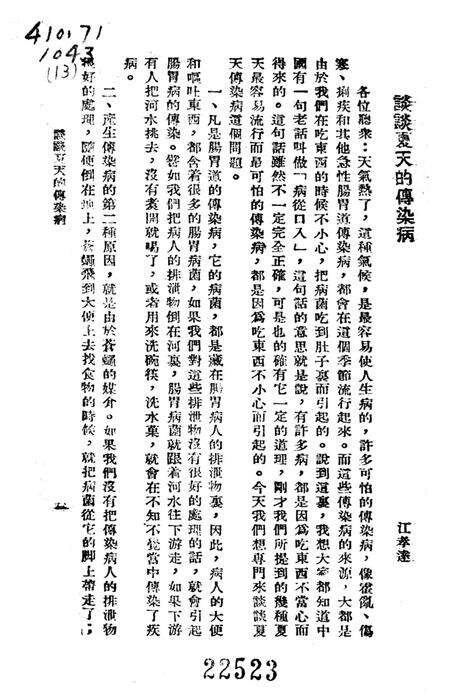 410171
1043
(13)
談談夏天的傳染病
江孝達
各位聽衆：天氣熱了，這種氣候，是最容易使人生病的，許多可怕的傳染病，像霍亂、傷
寒、痢疾和其他急性腸胃道傳染病，都會在這個季節流行起來。而這些傳染病的來源，大都是
由於我們在吃東西的時候不小心，把病菌吃到肚子裏而引起的。說到這裏，我想大家都知道中
國有一句老話叫做「病從口入」，這句話的意思就是說，有許多病，都是因爲吃東西不當心而
得來的。這句話雖然不一定完全正確，可是也的確有它一定的道理，剛才我們所提到的幾種夏
天最容易流行而最可怕的傳染病，都是因爲吃東西不小心而引起的。今天我們想專門來談談夏
天傳染病這個問題。
一、凡是腸胃道的傳染病，它的病菌，都是藏在腸胃病人的排泄物裏，因此，病人的大便
和嘔吐東西，都含着很多的腸胃病菌，如果我們對這些排泄物沒有很好的處理的話，就會引起
腸胃病的傳染。譬如我們把病人的排泄物倒在河裏，腸胃病菌就跟着河水往下游走，如果下游
有人把河水挑去，沒有煮開就喝了，或者用來洗碗筷，洗水菓，就會在不知不覺當中傳染了疾
病。
二、產生傳染病的第二種原因，就是由於蒼蠅的媒介。如果我們沒有把傳染病人的排泄物
很好的處理，隨便倒在地上，蒼蠅飛到大便上去找食物的時候，就把病菌從它的脚上帶走了；
談談夏天的傳染病
22523